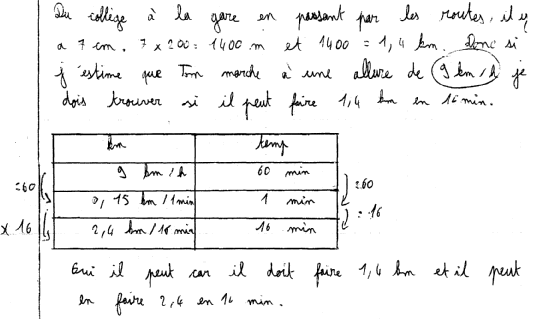 Du collège à la gare en passant par les routes, il y
a 7 cm. 7 x 200 = 1400 m et 1400 = 1,4 km. Donc si
j'estime que Tom marche à une allure de 9 km/h je
dois trouver si il peut faire 1,4 km en 16 min.
km temp
9 km/h 60 min
:60 0,15 km/1min 1 min :60
x 16 2,4 km/16 min 16 min : 16
Oui il peut car il doit faire 1,4 km et il peut
en faire 2,4 en 16 min.